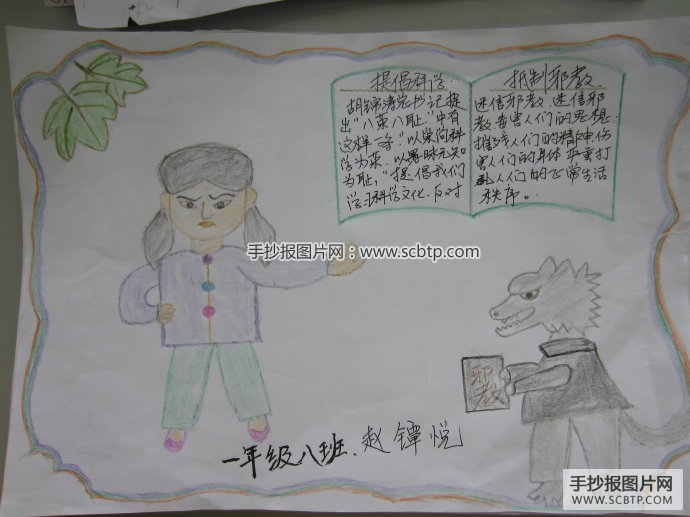 提倡科学.
胡锦涛总书记提
出“八荣八耻.”中有
这样一条:“以崇尚科
学为荣.以愚昧无知
为耻,”提倡我们
学习科学文化.反对
抵制邪教.
迷信邪教.迷信邪
教毒害人们的思想.
摧残人们的精神伤
害人们的身体.严重打
乱人们的正常生活
秩序。
手抄报图片网:www.scbtp.com
邪教
一年级八班.赵镡悦
手抄报图片网
WWW.SCBTP.COM